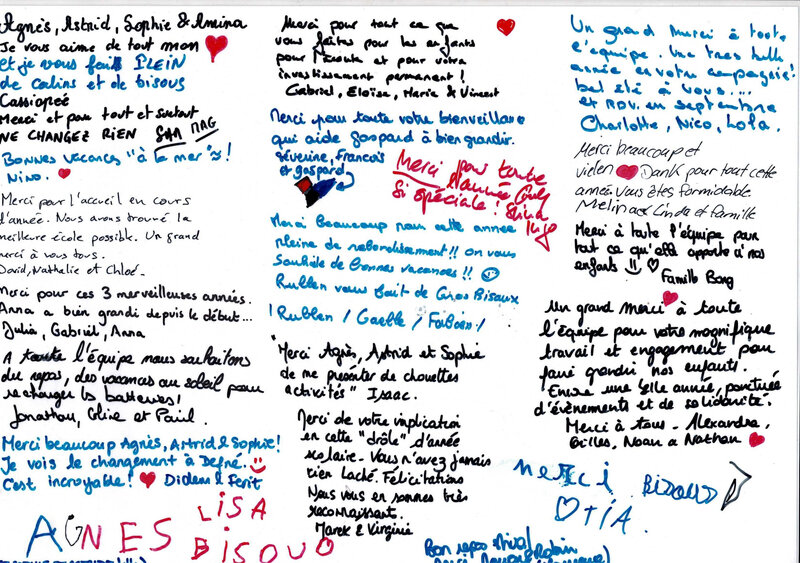 Agnès, Astrid, Sophie & Amina
Je vous aime de tout mon
et je vous fais PLEIN
de calins et de bisous
Cassiopée
Merci et pour tout et surtout
NE CHANGEZ RIEN
Bonnes vacances "à la mer"!
Nino.
Merci pour l'accueil en cours
d'année. Nous avons trouvé la
meilleure école possible. Un grand
merci à vous tous.
David, Nathalie et Chloé.
Merci pour ces 3 merveilleuses années.
Anna a bien grandi depuis le début...
Julia, Gabriel, Anna
A toute l'équipe nous souhaitons
du repos, des vacances au soleil pour
rechanger les batteries!
Jonathan, et Paul.
Merci beaucoup Agnès, Astrid & Sophie!
Je vois le changement à Defné.
C'est incroyable! Didem & Ferit
AGNES LISA
BISOUO
Merci pour tout ce que
vous faites pour les enfants
pour l'écoute et pour votre
investissement permanent!
Gabriel, Eloïse, Marie & Vincent
Merci pour toute votre bienveillance
qui aide gaspard à bien grandir.
Séverine, François
et gaspard
Merci pour toute
l'année
Si spéciale!
Merci Beaucoup pour cette année
pleine de rebondissement!! On vous
souhaite de bonnes vacances!!
Ruben vous fait de Gros Bisous
! Ruben / Gaëlle / Fabien!
"Merci Agnès, Astrid et Sophie
de me présenter de chouettes
activités" Isaac.
Merci de votre implication
en cette "drôle" d'année
scolaire. Vous n'avez jamais
rien laché. Félicitations
Nous vous en sommes très
reconnaissant.
Marek & Virginie
Bon repos
Un grand merci à toute
l'équipe. Une très belle
année en votre compagnie!
bel été à vous...
et RDV en septembre
Charlotte, Nico, Lola.
Merci beaucoup et
vielen Dank pour tout cette
année. Vous êtes formidable
Melina Linda et Famille
Merci à toute l'équipe pour
tout ce qu'elle apporte à nos
enfants!!
Famille
Un grand Merci à toute
l'équipe pour votre magnifique
travail et engagement pour
faire grandir nos enfants.
Encore une belle année, ponctuée
d'évènements et de solidarité.
Merci à tous - Alexandra,
Gilles, Noan & Nathan
merci BISOUS
TIA.